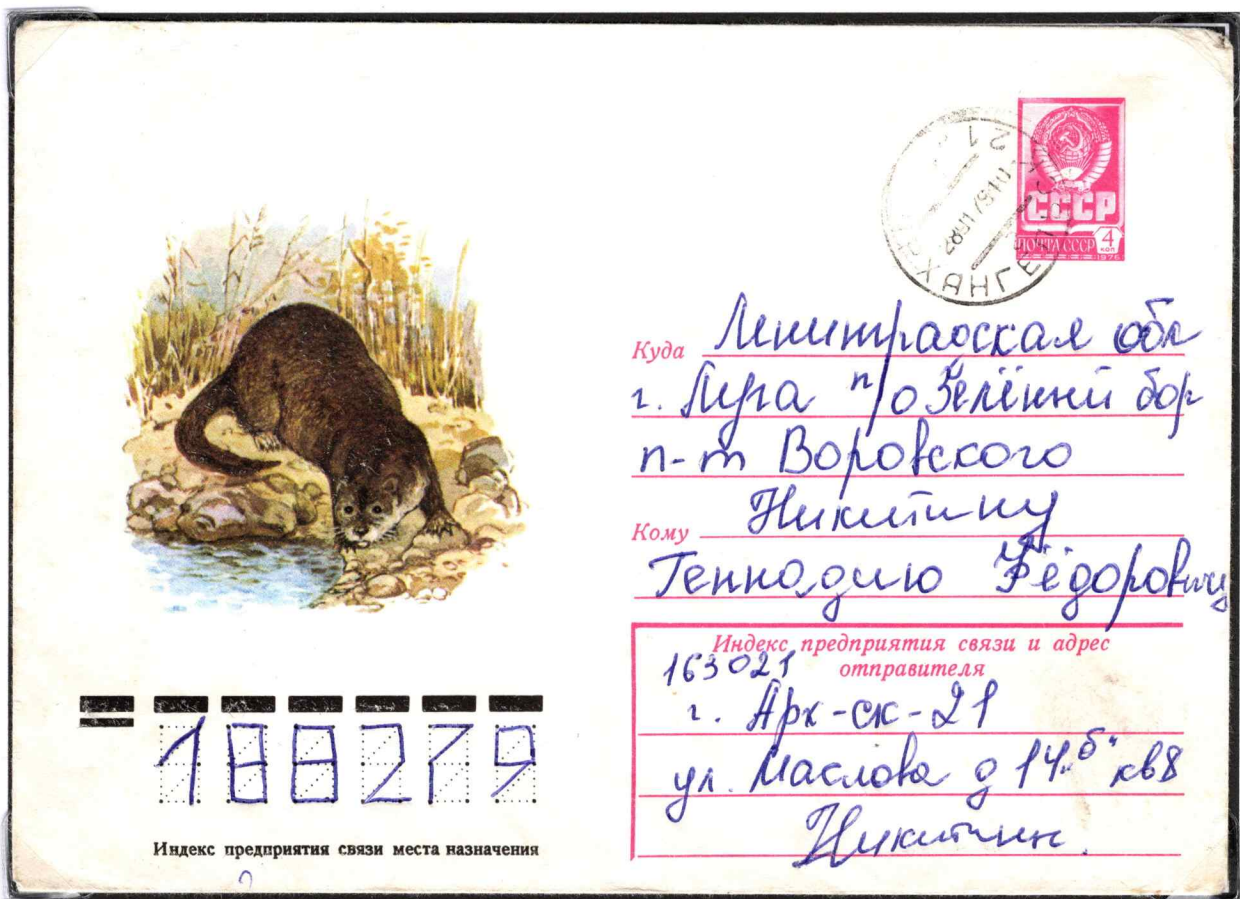 СССР
ПОЧТА СССР 4 КОП
1976
АРХАНГЕЛЬСК 21
Куда Ленинградская обл
г. Луга п/о Зелённй бор
п-т Воровского
Кому Никитину
Геннадию Фёдоровичу
Индекс предприятия связи и адрес
отправителя
163021
г. Арх-ск-21
ул. Маслова д 14 „б" кв8
Никитин.
188279
Индекс предприятия связи места назначения